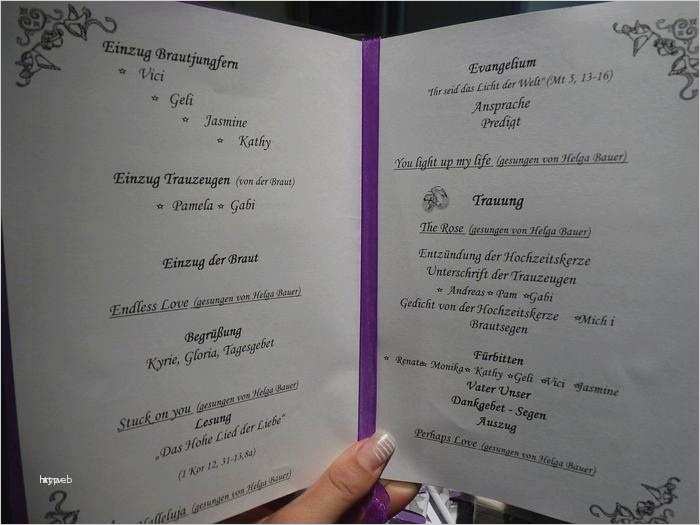 Einzug Brautjungfern
☆ Vici
☆ Geli
☆ Jasmine
☆ Kathy
Einzug Trauzeugen (von der Braut)
☆ Pamela ☆ Gabi
Einzug der Braut
Endless Love (gesungen von Helga Bauer)
Begrüßung
Kyrie, Gloria, Tagesgebet
Stuck on you (gesungen von Helga Bauer)
Lesung
„Das Hohe Lied der Liebe“
(1 Kor 12, 31-13,8a)
Halleluja (gesungen von Helga Bauer)
Evangelium
"Ihr seid das Licht der Welt" (Mt 5, 13-16)
Ansprache
Predigt
You light up my life (gesungen von Helga Bauer)
Trauung
The Rose (gesungen von Helga Bauer)
Entzündung der Hochzeitskerze
Unterschrift der Trauzeugen
☆ Andreas ☆ Pam ☆Gabi
Gedicht von der Hochzeitskerze ☆Mich i
Brautsegen
Fürbitten
☆ Renate☆ Monika☆ Kathy ☆Geli ☆Vici ☆Jasmine
Vater Unser
Dankgebet - Segen
Auszug
Perhaps Love (gesungen von Helga Bauer)